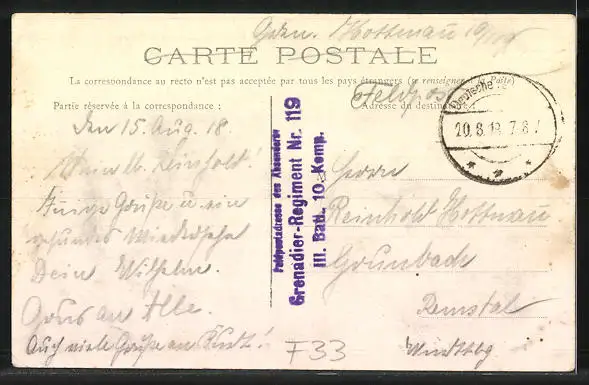 Gren. Hottmau 10/119
CARTE POSTALE
La correspondance au recto n'est pas acceptée par tous les pays étrangers (se renseigner à la Poste)
Feldpost
Partie réservée à la correspondance :
Adresse du destinataire
Deutsche
20.8.18. 7-8
Den 15. Aug. 18.
Mein lb. Reinhold!
Grüße u ein
gesundes Wiedersehn
Dein Wilhelm.
Gruss an Alle.
Auch viele Grüße an
Feldpostadresse des Absenders
Grenadier-Regiment Nr. 119
III. Batl. 10. Komp.
Herrn
Reinhold Hottmau
Grunbach
Remstal
Württbg
F33